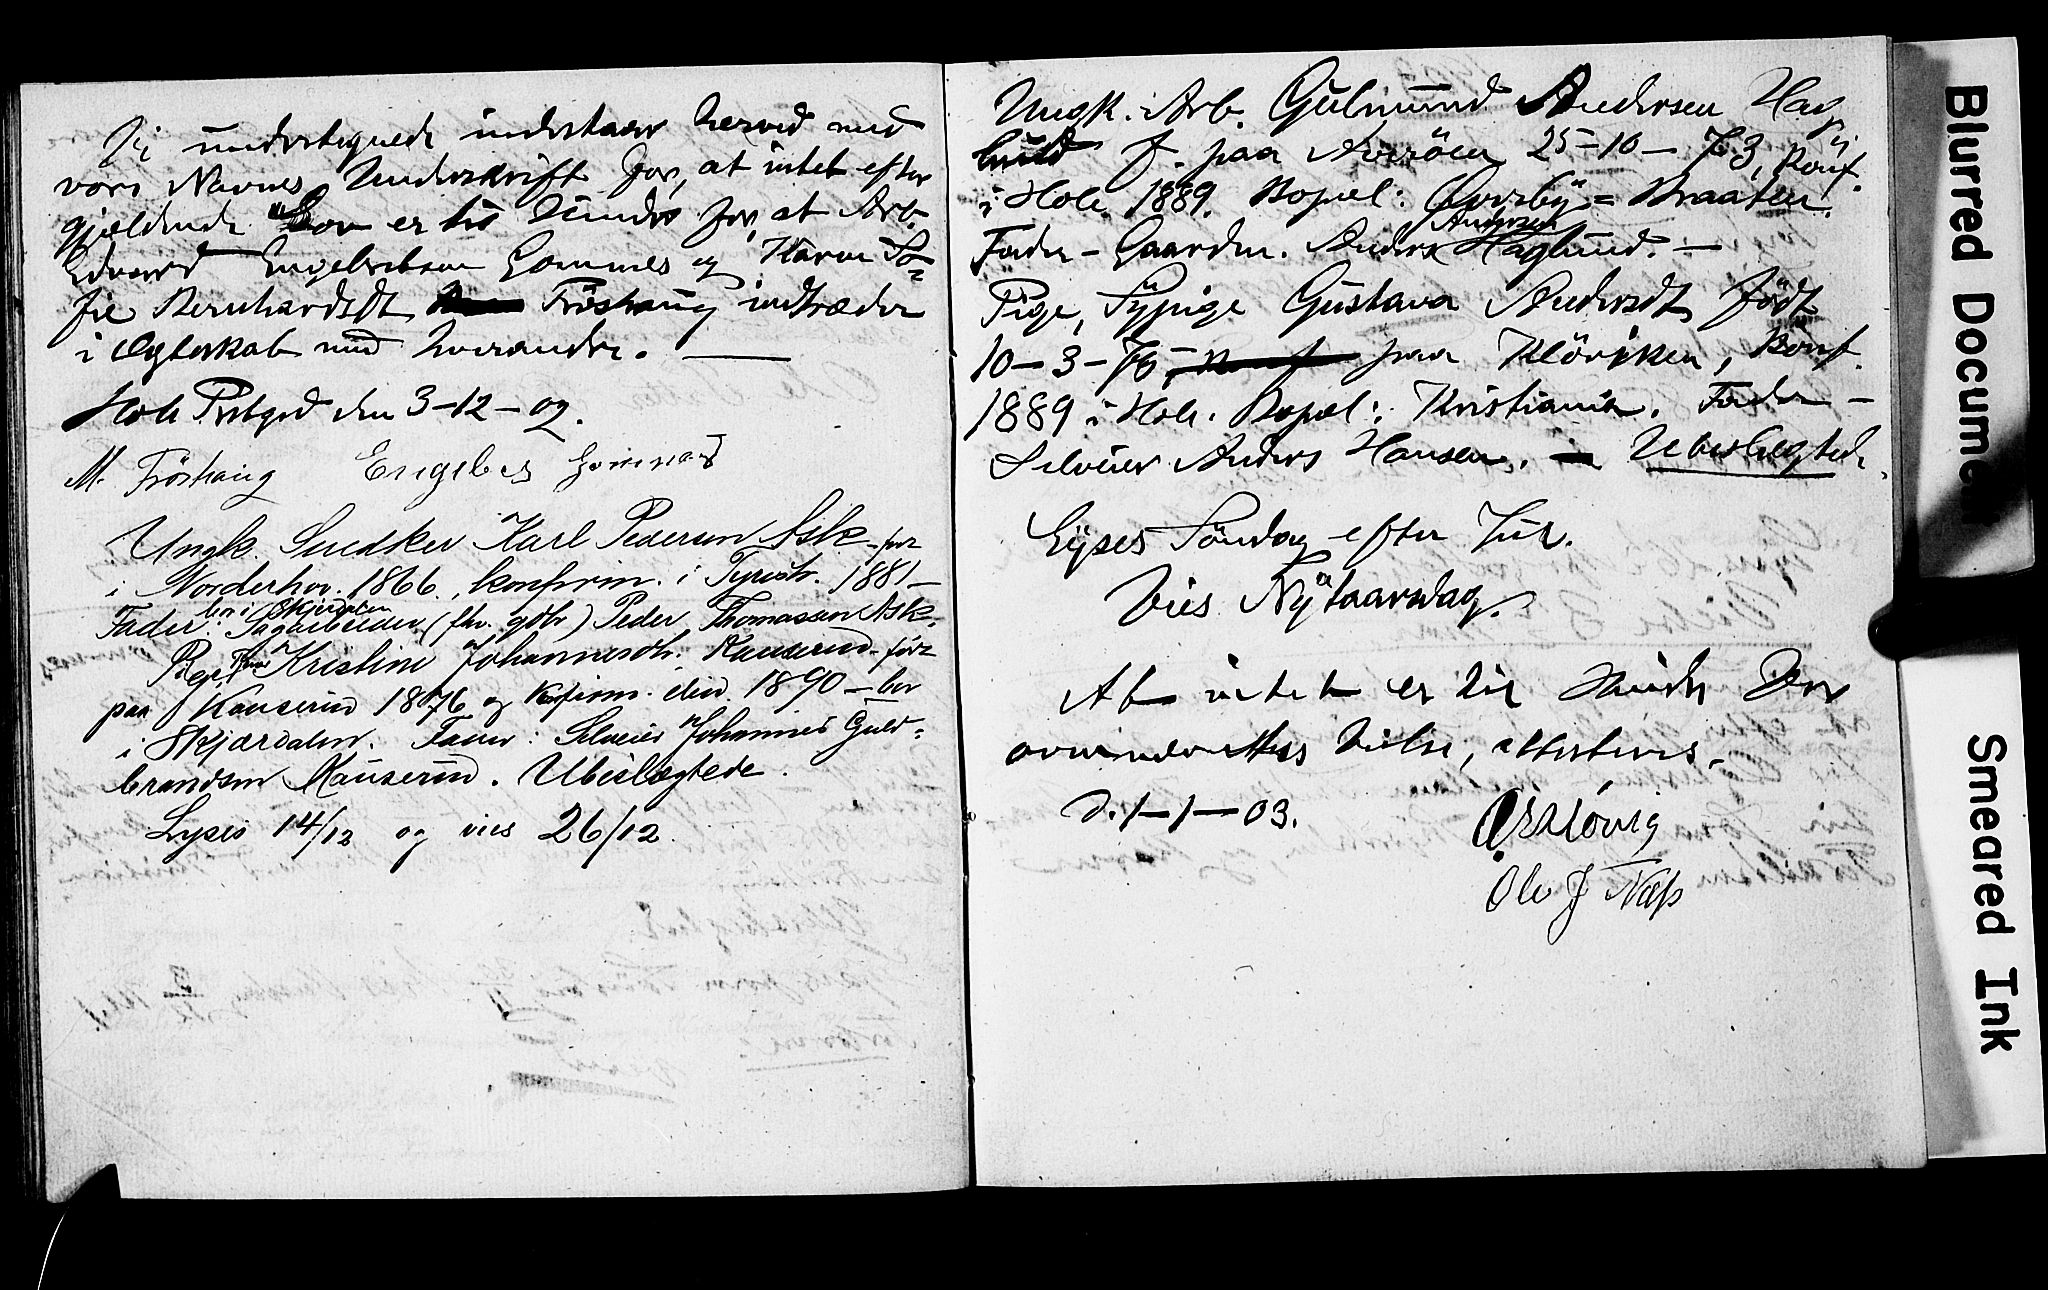 Vi undertegnede indestaar herved med
vore Navnes Underskrift for, at intet efter
gjeldende Lov er til Hinder for, at Arb.
Edvard Engebretsen Gommes og Karen So=
fie Bernhardsdt Fröshaug indtræder
i Ægteskab med hverandre.
Hole Prstgrd den 3-12-02.
M. Fröshaug Engebret Gomnæs
Ungk. Snedker Karl Pedersen Ask - før
i Norderhov. 1866, konfirm. i Tyristr. 1881 -
bor i Skjærdalen
Fader: Sagarbeider (fhv. gdbr) Peder Thomassen Ask.
Pige Kristine Johannesdtr. Kauserud - født
paa Kauserud 1876 og Kfirm. did. 1890 - bor
i Skjærdalen. Fader: Selveier Johannes Guld=
brandsen Kauserud. Ubeslægtede.
Lyses 14/12 og vies 26/12.
Ungk. Arb. Gulmund Andersen Hag
lund f. paa Averöen 25-10-73, Konf.
i Hole 1889. Bopæl: Braaten.
Andersen
Fader - Gaardm. Anders Haglund. -
Pige, Sypige Gustava Andersdt, født
10-3-76 - paa Klörken, Konf.
1889 i Hole. Bopæl: Kristiania. Fader -
Selveier Anders Hansen. - Ubeslægtede.
Lyses Söndag efter Jul.
Vies Nytaarsdag.
At intet er til Hinder for
ovennævntes Vielse, attesteres.
d. 1-1-03.
Ole J Næss
Blurred Document
Smeared Ink